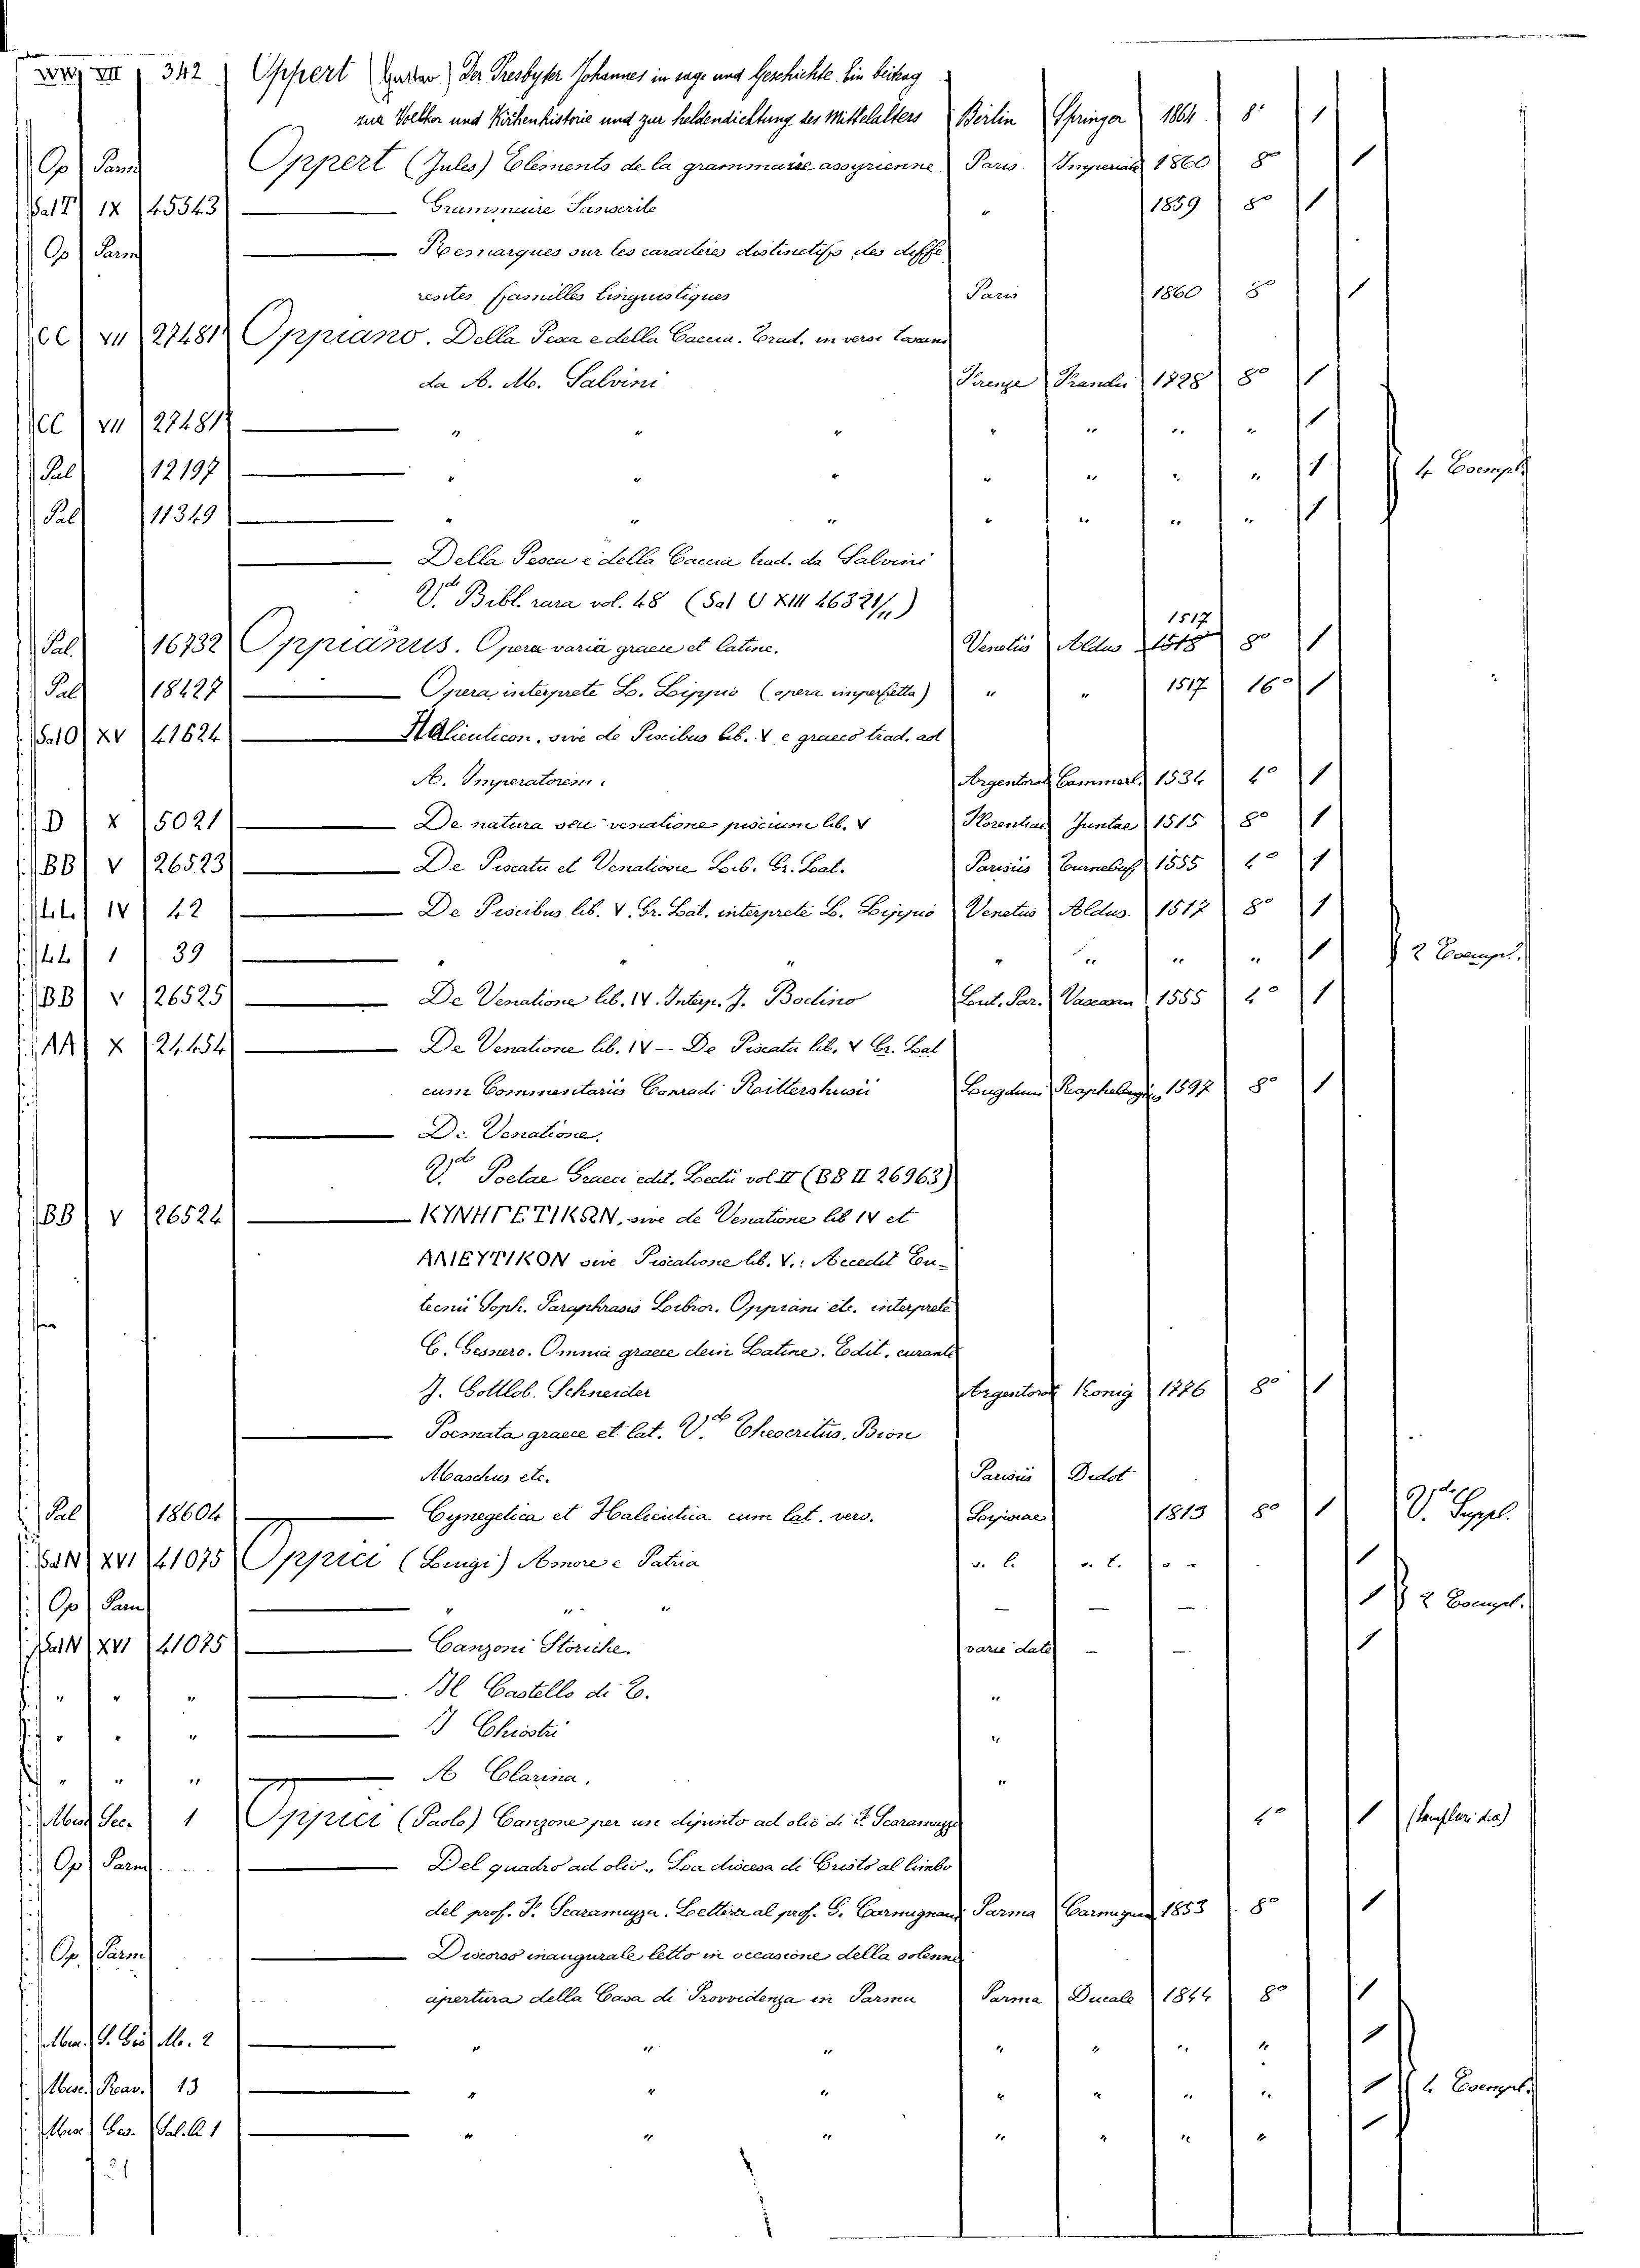 VII 342 Oppert (Gustav) Der Presbyter Johannes in sage und Geschichte. Ein beitrag
zur Volker und Kirchenhistorie und zur heldendichtung des Mittelalters Berlin Springer 1864. 8°. 1
Op Parm Oppert (Jules) Elements de la grammaire assyrienne Paris Imperiale 1860 8° 1
Sal T IX 45543 — Grammaire Sanscrite " 1859 8° 1
Op Parm — Remarques sur les caracteres distinctifs des diffe
rentes familles linguistiques Paris 1860 8° 1
CC VII 27481 Oppiano. Della Pesca e della Caccia. Trad. in versi
da A. M. Salvini Firenze 1728 8° 1
CC VII 27481 — " " " " " " " 1
Pal 12197 — " " " " " " " 1 4 Esempl.
Pal 11349 — " " " " " " " 1
— Della Pesca e della Caccia trad. da Salvini
V.de Bibl. rara vol. 48 (Sal U XIII 46321/11)
1517
Pal. 16732 Oppianus. Opera varia graece et latine. Venetiis Aldus 1518 8° 1
Pal 18427 — Opera interprete L. Lippio (opera imperfetta) " " 1517 16° 1
Sal O XV 41624 — Halieuticon, sive de Piscibus lib. V e graeco trad. ad
A. Imperatorem. Argentorat Cammerl. 1534 4° 1
D X 5021 — De natura seu venatione piscium lib. V Florentiae Juntae 1515 8° 1
BB V 26523 — De Piscatu et Venatione Lib. Gr. Lat. Parisiis Turnebus 1555 4° 1
LL IV 42 — De Piscibus lib. V. Gr. Lat. interprete L. Lippio Venetiis Aldus. 1517 8° 1
LL I 39 — " " " " " " " 1 2 Esempl.
BB V 26525 — De Venatione lib. IV. Interp. J. Bodino Lut. Par. Vascosan 1555 4° 1
AA X 24454 — De Venatione lib. IV — De Piscatu lib. V Gr. Lat
cum Commentariis Conradi Rittershusii Lugduni Raphelengius 1597 8° 1
— De Venatione.
V.de Poetae Graeci edit. Lectii vol II (BB II 26963)
BB V 26524 — ΚΥΝΗΓΕΤΙΚΩΝ, sive de Venatione lib IV et
ΑΛΙΕΥΤΙΚΟΝ sive Piscatione lib. V.: Accedit Eu-
tecnii Soph. Paraphrasis Libror. Oppiani etc. interprete
C. Gesnero. Omnia graece dein Latine. Edit. curante
J. Gottlob. Schneider Argentorat König 1776 8° 1
— Poemata graece et lat. V.de Theocritus, Bion
Maschus etc. Parisiis Didot
Pal 18604 — Cynegetica et Halieutica cum lat. vers. Lipsiae 1813 8° 1 V.de Suppl.
Sal N XVI 41075 Oppici (Luigi) Amore e Patria s. l. s. t. 1
Op Parm — " " " — — — 1 2 Esempl.
Sal N XVI 41075 — Canzoni Storiche. varie date — — 1
" " " — Il Castello di C. "
" " " — I Chiostri "
" " " — A Clarina. "
Misc Sec. 1 Oppici (Paolo) Canzone per un dipinto ad olio di F. Scaramuzza 4° 1
Op Parm — Del quadro ad olio. La discesa di Cristo al limbo
del prof. F. Scaramuzza. Lettera al prof. G. Carmignani Parma Carmignani 1853 8° 1
Op. Parm — Discorso inaugurale letto in occasione della solenne
apertura della Casa di Provvidenza in Parma Parma Ducale 1844 8° 1
M. 2 — " " " " " " " 1
Misc. 13 — " " " " " " " 1 4 Esempl.
1 — " " " " " " " 1